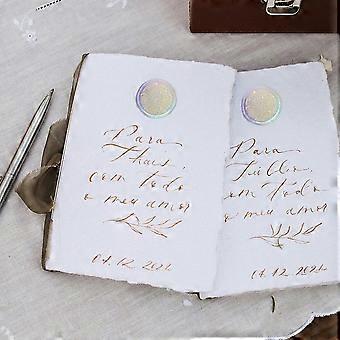 Para
Thais,
com todo
o meu amor
04.12.2021
Para
Tullio,
com todo
o meu amor
04.12.2021